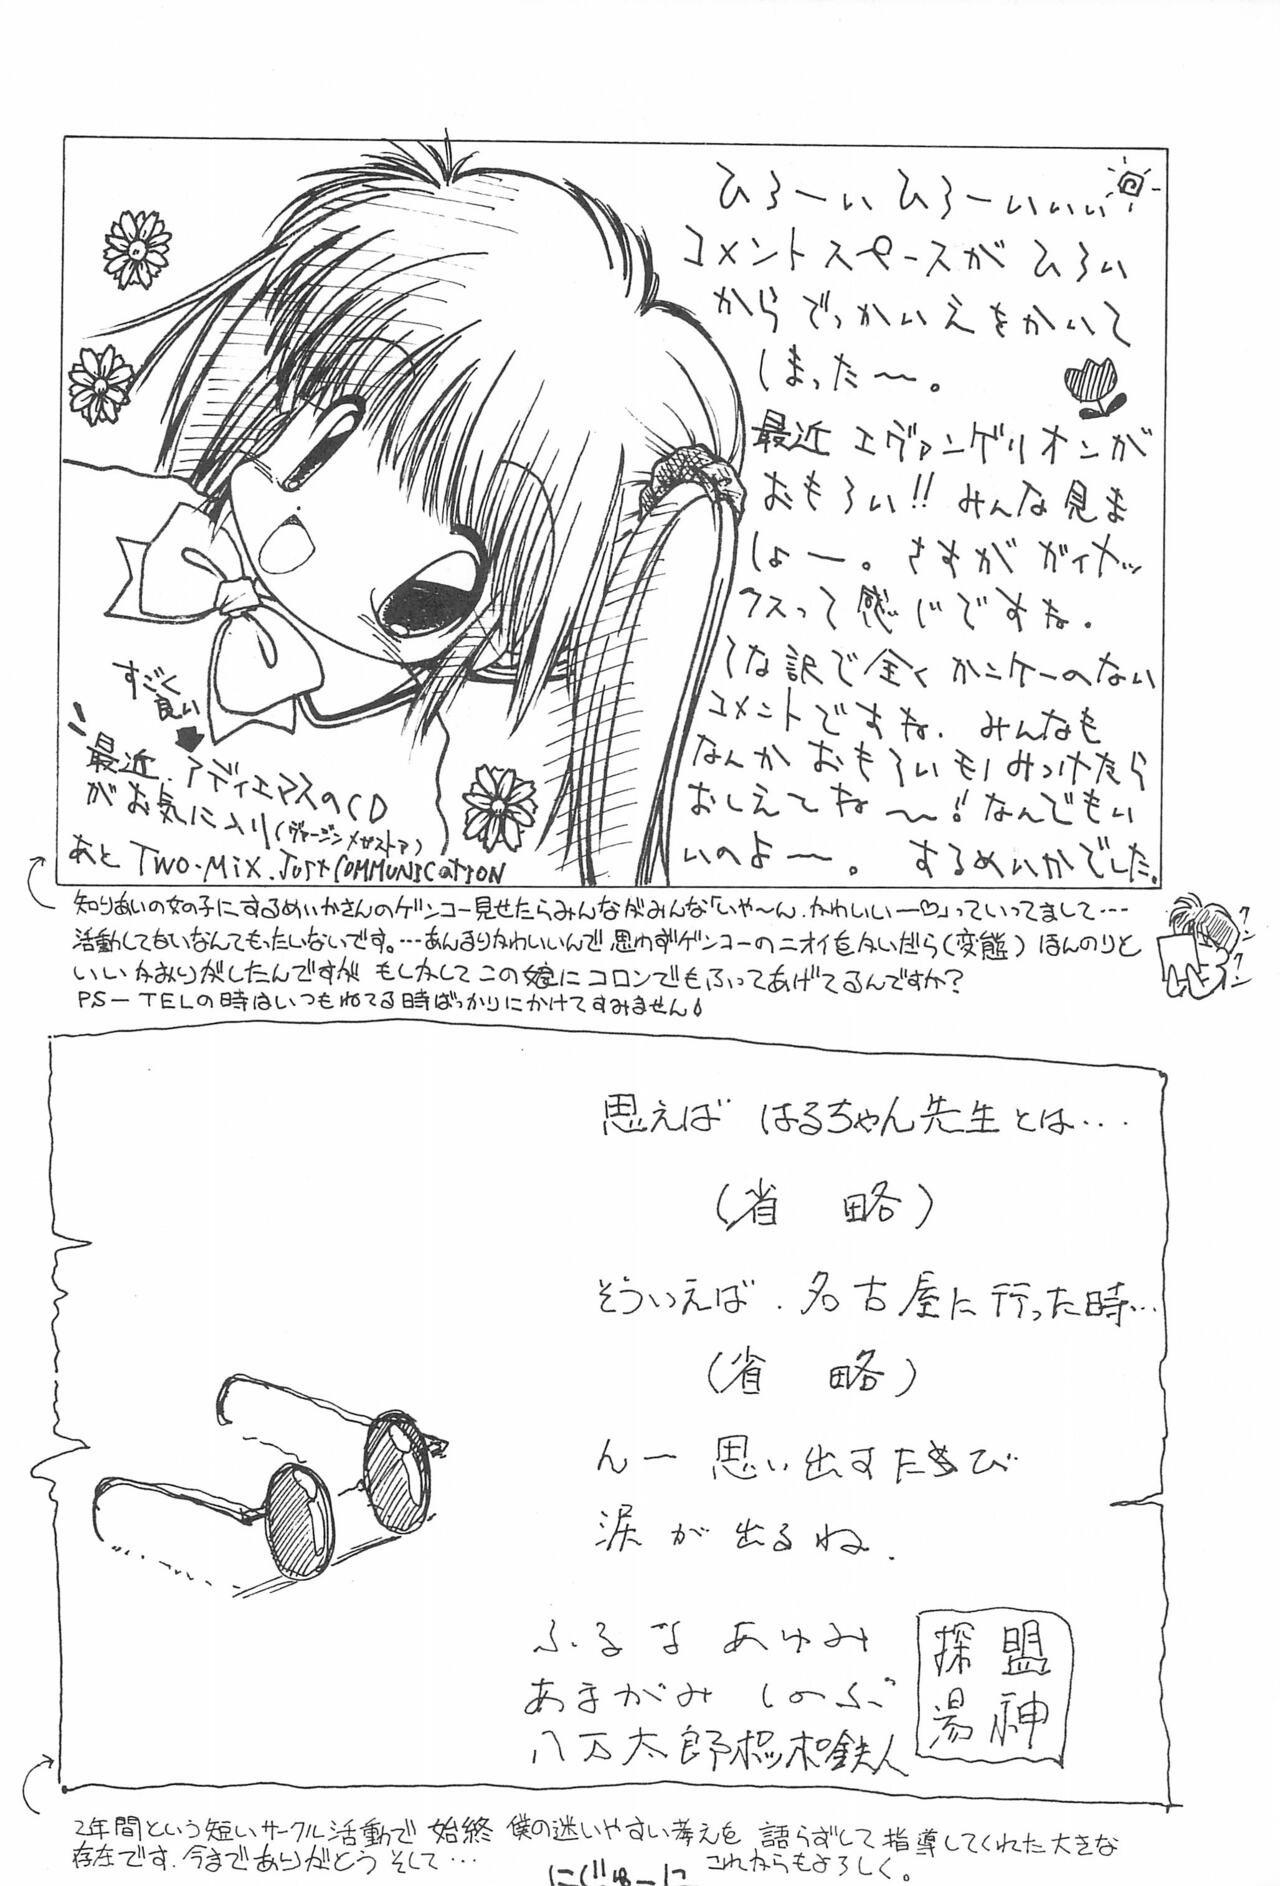 ひろーぃ ひろーぃぃぃ
コメントスペースが ひろい
からでっかいえをかいて
しまった〜。
最近 エヴァンゲリオンが
おもろい!! みんな見ま
しょー。さすが ガイナッ
クスって感じですね。
てな訳で全く カンケーのない
コメントですね. みんなも
なんか おもろいもんみつけたら
おしえてね〜! なんでもい
いのよー。 するめいかでした.
すごく
良い
最近. アディエマスのCD
がお気に入り(ヴァージンメガストア)
あと TWO-MIX. JUST COMMUNICATION
知りあいの女の子にするめいかさんのゲンコー見せたらみんながみんな「いや〜ん.かわいいー♡」っていってまして…
活動してないなんてもったいないです。…あんまりかわいいんで思わずゲンコーのニオイをかいだら(変態) ほんのりと
いいかおりがしたんですが もしかしてこの娘にコロンでもふってあげてるんですか?
PS-TELの時はいつもねてる時ばっかりにかけてすみません
クン
クン
思えば はるちゃん先生とは…
(省 略)
そういえば.名古屋に行った時…
(省 略)
んー 思い出すたんび
涙が出るね.
ふるな あゆみ
あまがみ しのぶ
八万太郎ポッポ鉄人
探 盟
湯 神
2年間という短いサークル活動で 始終 僕の迷いやすい考えを 語らずして指導してくれた大きな
存在です.今までありがとう そして… これからもよろしく。
にじゅーに